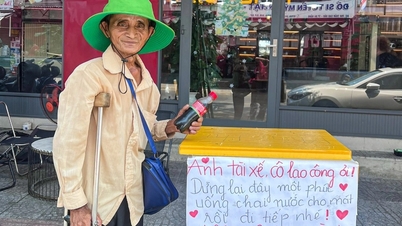 ĐỔI SI TUYỂN M
Anh tài xế, cô lao công ơi!
Dừng lại đây một phút
uống chai nước cho mát
rồi đi tiếp nhé!